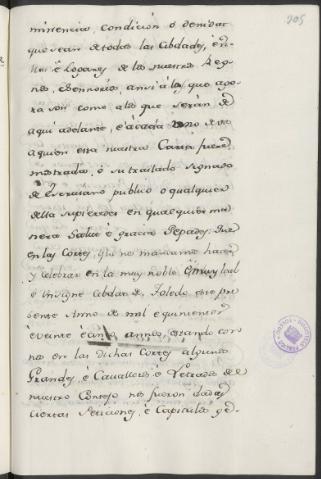 905
minencia, condicion o denidat
que sean de todas las Cibdades, é vi-
llas é Logares de los nuestros Reg-
nos, é Sennorios, ansi á los que ago-
ra son como á los que serán de
aqui adelante, é á cada uno de vos
a quien esta nuestra Carta fuere
mostrada, ó su traslado signado
de Escrivano publico o qualquier
della supieredes en qualquier ma-
nera Salut é gracia Sepades: Que
en las Cortes, que no mandamos hacer
y celebrar en la muy noble é muy leal
é insigne cibdat de Toledo este pre-
sente Anno de mil é quinientos
é veinte é cinco annos, estando con
nos en las dichas Cortes algunos
Grandes, é Cavalleros é Letrados de el
nuestro Consejo nos fueron dadas
ciertas Peticiones, é Capitulos ge-